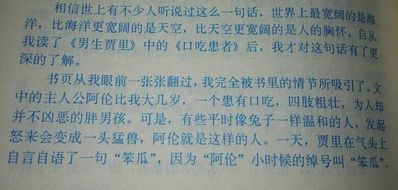 相信世上有不少人听说过这么一句话，世界上最宽阔的是海
洋。比海洋更宽阔的是天空，比天空更宽阔的是人的胸怀。自从
我读了《男生贾里》中的《口吃患者》后，我才对这句话有了更
深的了解。
书页从我眼前一张张翻过，我完全被书里的情节所吸引了。文
中的主人公阿伦比我大几岁，一个患有口吃，四肢粗壮，为人却
并不凶恶的胖男孩。可是，有些平时像兔子一样温和的人，发起
怒来会变成一头猛兽，阿伦就是这样的人。一天，贾里在气头上
自言自语了一句“笨瓜”，因为“阿伦”小时候的绰号叫“笨瓜”，